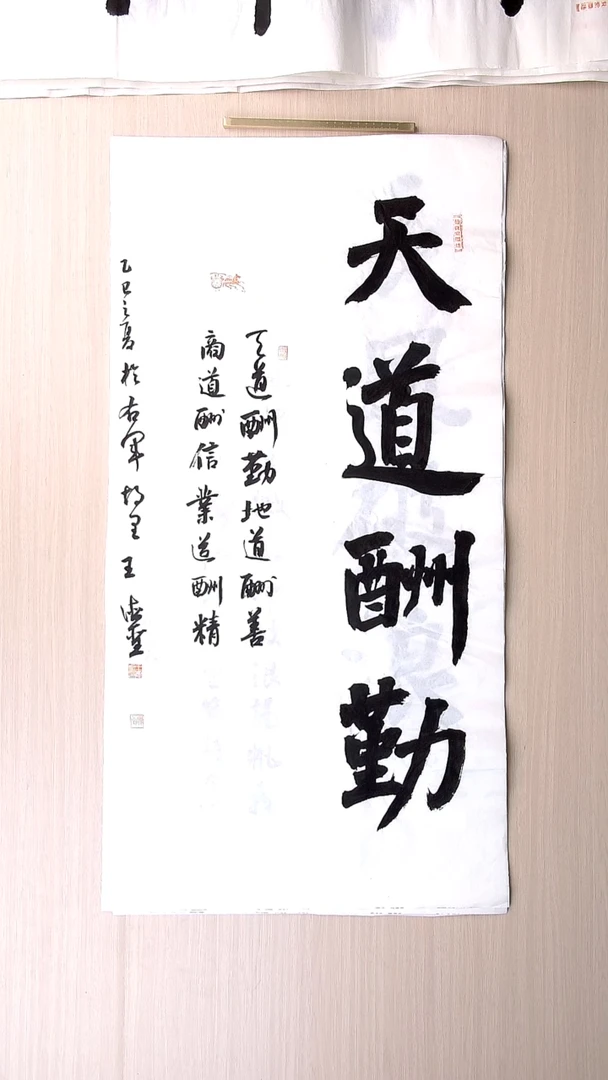 天道酬勤
天道酬勤地道酬善
商道酬信業道酬精
乙巳之夏於右軍故里王